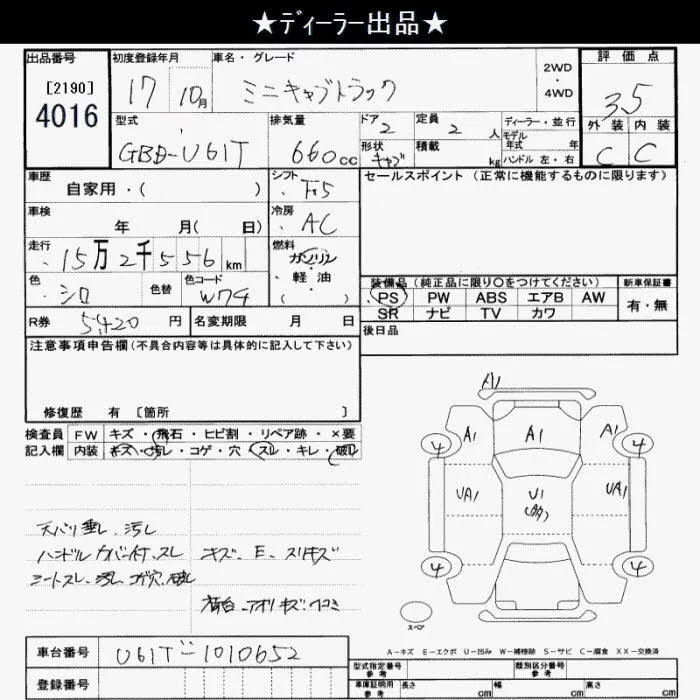 ★ディーラー出品★
出品番号
[2190]
4016
初度登録年月
17 10月
車名・グレード
ミニキャブトラック
2WD
・
4WD
評価点
3.5
外装 内装
C C
型式
GBD-U61T
排気量
660cc
ドア
2
形状
キャブ
定員
2人
積載
kg
ディーラー・並行
モデル
年式 年
ハンドル 左・右
車歴
自家用・( )
シフト
F5
セールスポイント(正常に機能するものに限ります)
車検
年 月( 日)
冷房
AC
走行
15万2千556km
燃料
ガソリン
・
軽油
( )
色
シロ
色替
色コード
W74
装備品(純正品に限り○をつけてください)
PS PW ABS エアB AW
SR ナビ TV カワ
新車保証書
有・無
R券 5420円
名変期限 月 日
後日品
注意事項申告欄(不具合内容等は具体的に記入して下さい)
修復歴 有 [箇所 ]
検査員
記入欄
FW キズ・飛石・ヒビ割・リペア跡・×要
内装 キズ・汚レ・コゲ・穴・スレ・キレ・破レ
天バリ垂レ、汚レ
ハンドルカバー付、スレ
キズ、E、スリキズ
シートスレ、汚レ、コゲ穴、破レ
荷台、アオリキズ、ヘコミ
A1
A1 A1 A1
4 4
UA1 U1 UA1
4 4
スペア
A-キズ E-エクボ U-凹み W-補修跡 S-サビ C-腐食 XX-交換済
車台番号 U61T-1010652
登録番号
型式指定番号
参考
類別区分番号
参考
車庫証明用
参考
長さ cm 幅 cm 高さ cm